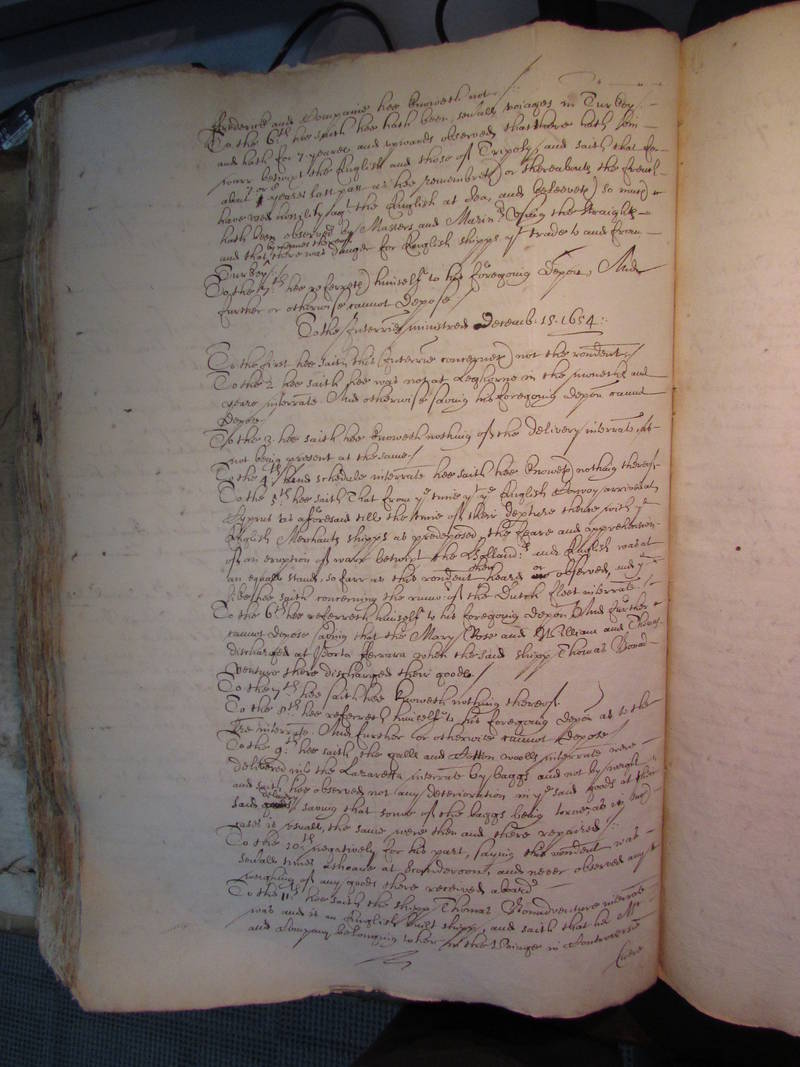 Frederick and Companie hee knoweth not./
To the 6th hee saith hee hath been severall voiages in Turkey
and hath for 7 yeares and upwards observed that there hath bin
warr betwixt the English and those of Tripoly, and saith that for
about 7 or 8 yeares last past as hee remembreth) or thereabouts the french
have used hostility agt the English at sea, and beleeveth) so much
hath been observed by Masters and Marinrs Using the Straights
and that by meanes thereof there was danger for English shipps yt trade to and from
Turkey./
To the 7th hee referreth) himselfe to his foregoing depon. And
further or otherwise cannot depose./
To the Interries ministred Decemb. 15. 1654:
To the first hee saith this Interrie concerneth) not the rendent./
To the 2 hee saith hee was not at Leghorne in the moneth and
yeare interrate. And otherwise saving his foregoing depon cannot
depose.
To the 3. hee saith hee knoweth nothing of the delivery interrate
not being present at the same./
To the 4th and schedule interrate hee saith hee knoweth nothing thereof.
To the 5th hee saith That from ye time yt ye English Convoy arrived at
Cyprus as aforesaid till the time of their depture thence with ye
English Merchants shipps as predeposed, the feare and apprehension
of an eruption of warr betwixt the Hollandrs and English was at
an equall stand, so farr as this rendent then heard or observed, and ye
like hee saith concerning the rumor of the Dutch fleet interrate./
To the 6th hee referreth himselfe to his foregoing depon And further
cannot depose saving that the Mary Rose and William and Thomas
discharged at Porta Ferrara when the said shipp Thomas Bonad-
venture there discharged their goods.
To the 7th hee saith hee knoweth nothing thereof.
To the 8th. hee referreth himselfe to his foregoing depon as to the
interrate. And further or otherwise cannot depose./
To the 9th hee saith the galls and Cotton wolls interrate were
delivered into the Lazaretta interrate by baggs and not by weight
and saith hee observed not any deterioration in ye said goods at their
said delivery saving that some of the baggs being torne, as in such
cases is usuall, the same were then and there repaired./
To the 10th negatively for his part, saying this rendent was
severall times ashoare at Scanderoone, and never observed any
weighing of any goods there received aboard.
To the 11th hee saith the shipp Thomas Bonadventure interrate
was and is an English built shipp, and saith that the Mr
and Company belonging to her in the Voiage in Controversie
were